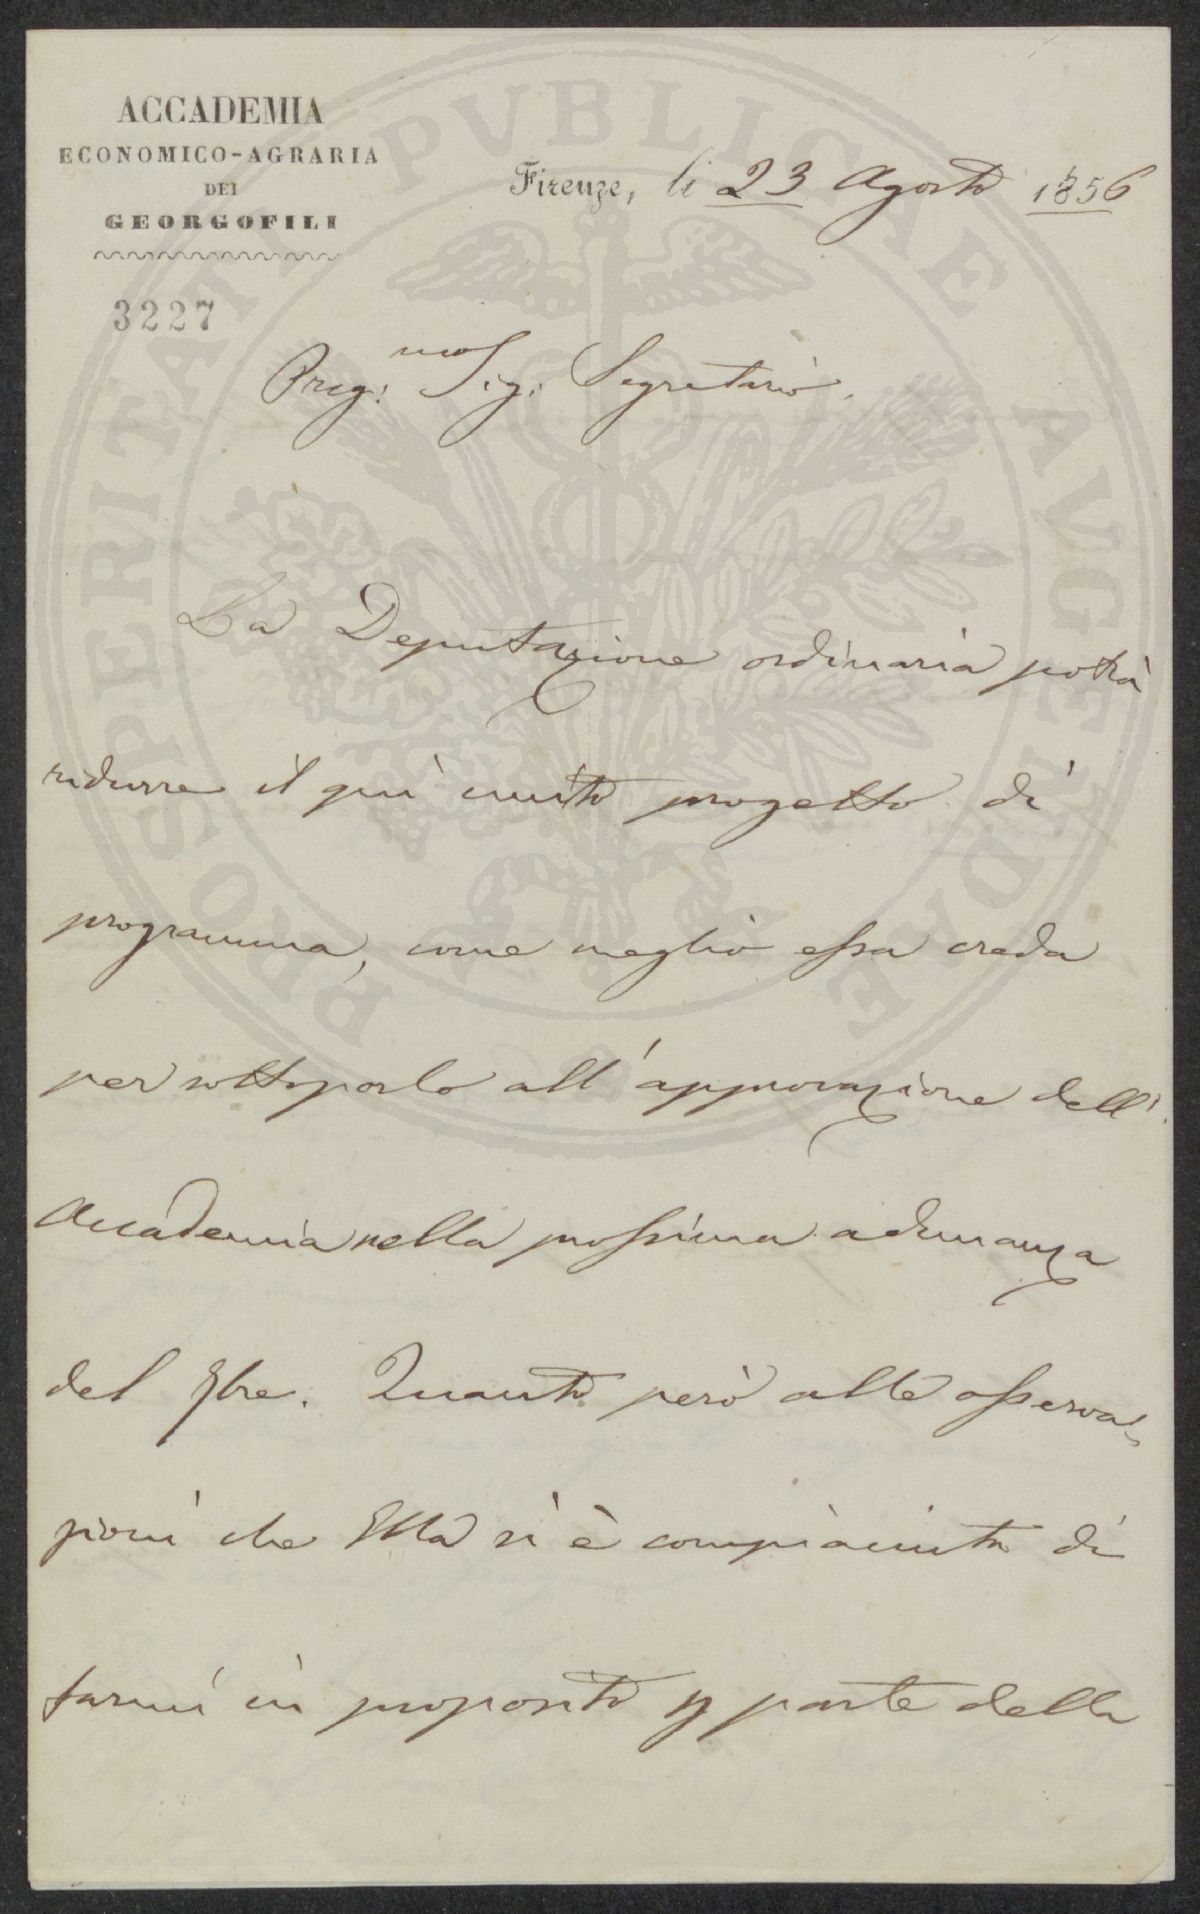 ACCADEMIA
ECONOMICO-AGRARIA
DEI
GEORGOFILI
Firenze, li 23 Agosto 1856
3227
Preg:mo Sig: Segretario.
La Deputazione ordinaria potrà
ridurre il quì unito progetto di
programma, come meglio essa creda
per sottoporlo all'approvazione dell'
Accademia nella prossima adunanza
del 7bre. Quanto però alle osserva-
zioni che Ella si è compiaciuta di
farmi in proposito p parte della
PROSPERITATI PVBLICAE AVGENDAE